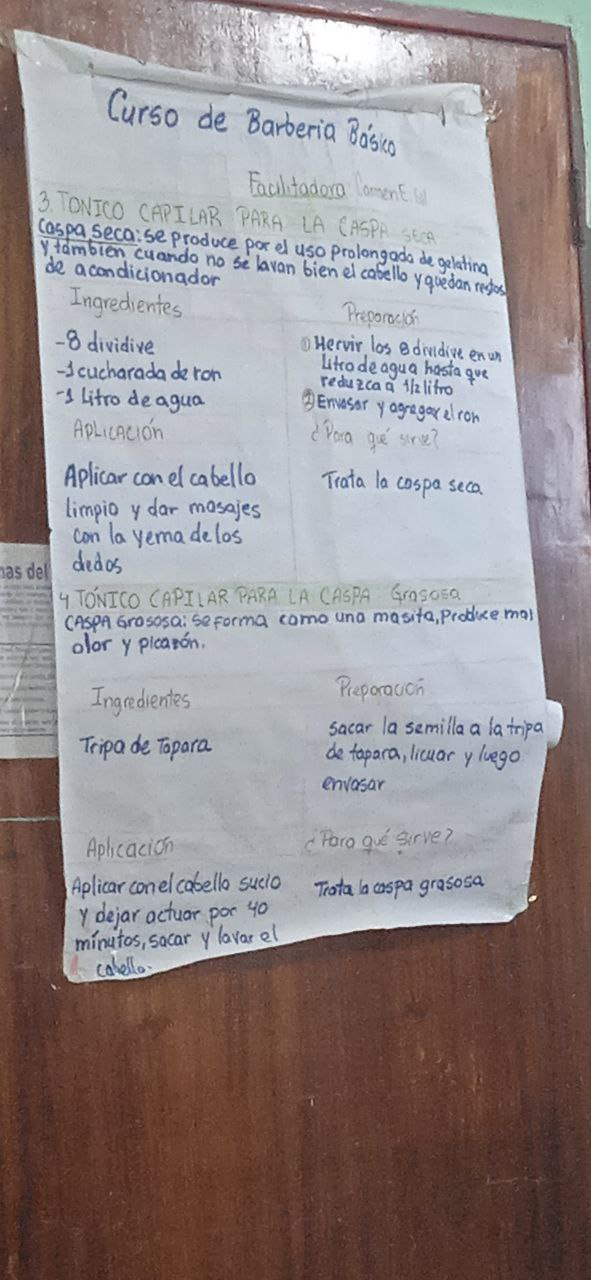 Curso de Barberia Básico
Facilitadora Carmen E.
3. TONICO CAPILAR PARA LA CASPA SECA
Caspa seca: se produce por el uso prolongado de gelatina
y también cuando no se lavan bien el cabello y quedan restos
de acondicionador
Ingredientes
-8 dividive
-1 cucharada de ron
-1 Litro de agua
Preparación
① Hervir los 8 dividive en un
Litro de agua hasta que
reduzca a 1/2 litro
② Envasar y agregar el ron
Aplicación
Aplicar con el cabello
limpio y dar masajes
con la yema de los
dedos
¿Para qué sirve?
Trata la caspa seca
4 TÓNICO CAPILAR PARA LA CASPA Grasosa
CASPA Grasosa: se forma como una masita, Produce mal
olor y picazón.
Ingredientes
Tripa de Tapara
Preparación
sacar la semilla a la tripa
de tapara, licuar y luego
envasar
Aplicación
Aplicar con el cabello sucio
y dejar actuar por 40
minutos, sacar y lavar el
cabello.
¿Para qué sirve?
Trata la caspa grasosa
nas del